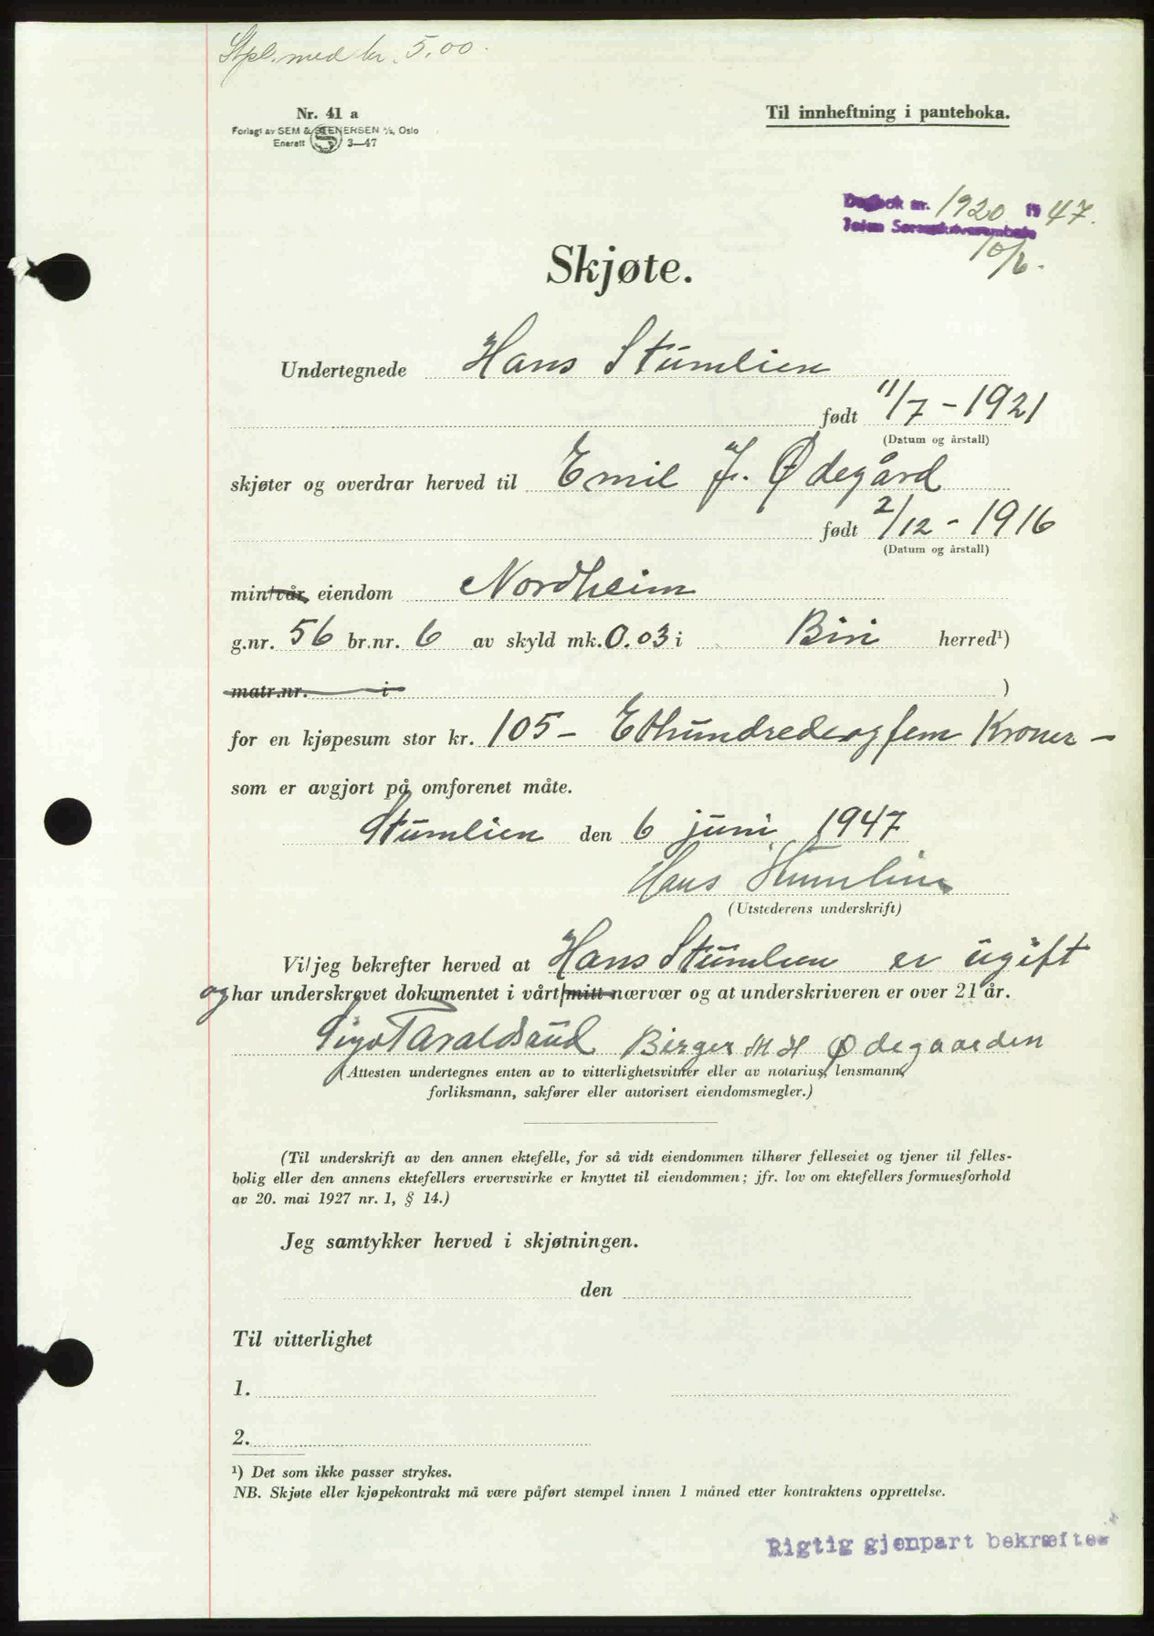 Stpl. med kr. 5.00.
Nr. 41 a
Forlagt av SEM & STENERSEN A/S, Oslo
Enerett 3—47
Til innheftning i panteboka.
Dagbok nr. 1920 19 47.
Toten Sorenskriverembete
10/6.
Skjøte.
Undertegnede Hans Stumlien
født 11/7 - 1921
(Datum og årstall)
skjøter og overdrar herved til Emil J. Ødegård
født 2/12 - 1916
(Datum og årstall)
min/vår eiendom Nordheim
g.nr. 56 br.nr. 6 av skyld mk. 0.03 i Biri herred¹)
matr.nr. i )
for en kjøpesum stor kr. 105 - Etthundredeogfem Kroner -
som er avgjort på omforenet måte.
Stumlien den 6 juni 1947
Hans Stumlien
(Utstederens underskrift)
Vi/jeg bekrefter herved at Hans Stumlien er ugift
og har underskrevet dokumentet i vårt/mitt nærvær og at underskriveren er over 21 år.
Taraldsrud Birger M H Ødegaarden
(Attesten undertegnes enten av to vitterlighetsvitner eller av notarius, lensmann,
forliksmann, sakfører eller autorisert eiendomsmegler.)
(Til underskrift av den annen ektefelle, for så vidt eiendommen tilhører felleseiet og tjener til felles-
bolig eller den annens ektefellers ervervsvirke er knyttet til eiendommen; jfr. lov om ektefellers formuesforhold
av 20. mai 1927 nr. 1, § 14.)
Jeg samtykker herved i skjøtningen.
den
Til vitterlighet
1.
2.
¹) Det som ikke passer strykes.
NB. Skjøte eller kjøpekontrakt må være påført stempel innen 1 måned etter kontraktens opprettelse.
Rigtig gjenpart bekræftes